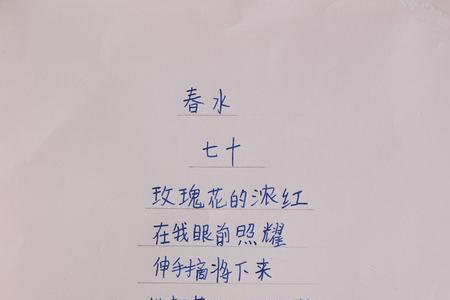 春水
七十
玫瑰花的浓红
在我眼前照耀
伸手摘将下来